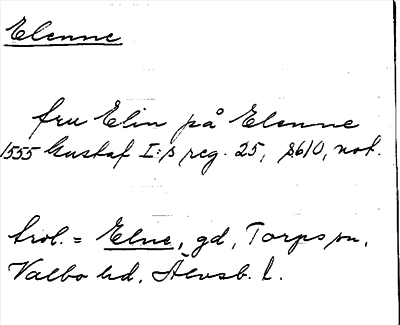 Elenne
fru Elin på Elenne
1555 Gustaf I:s reg. 25, s 610, not.
trol. = Elne, gd, Torps sn,
Valbo hd, Älvsb. l.